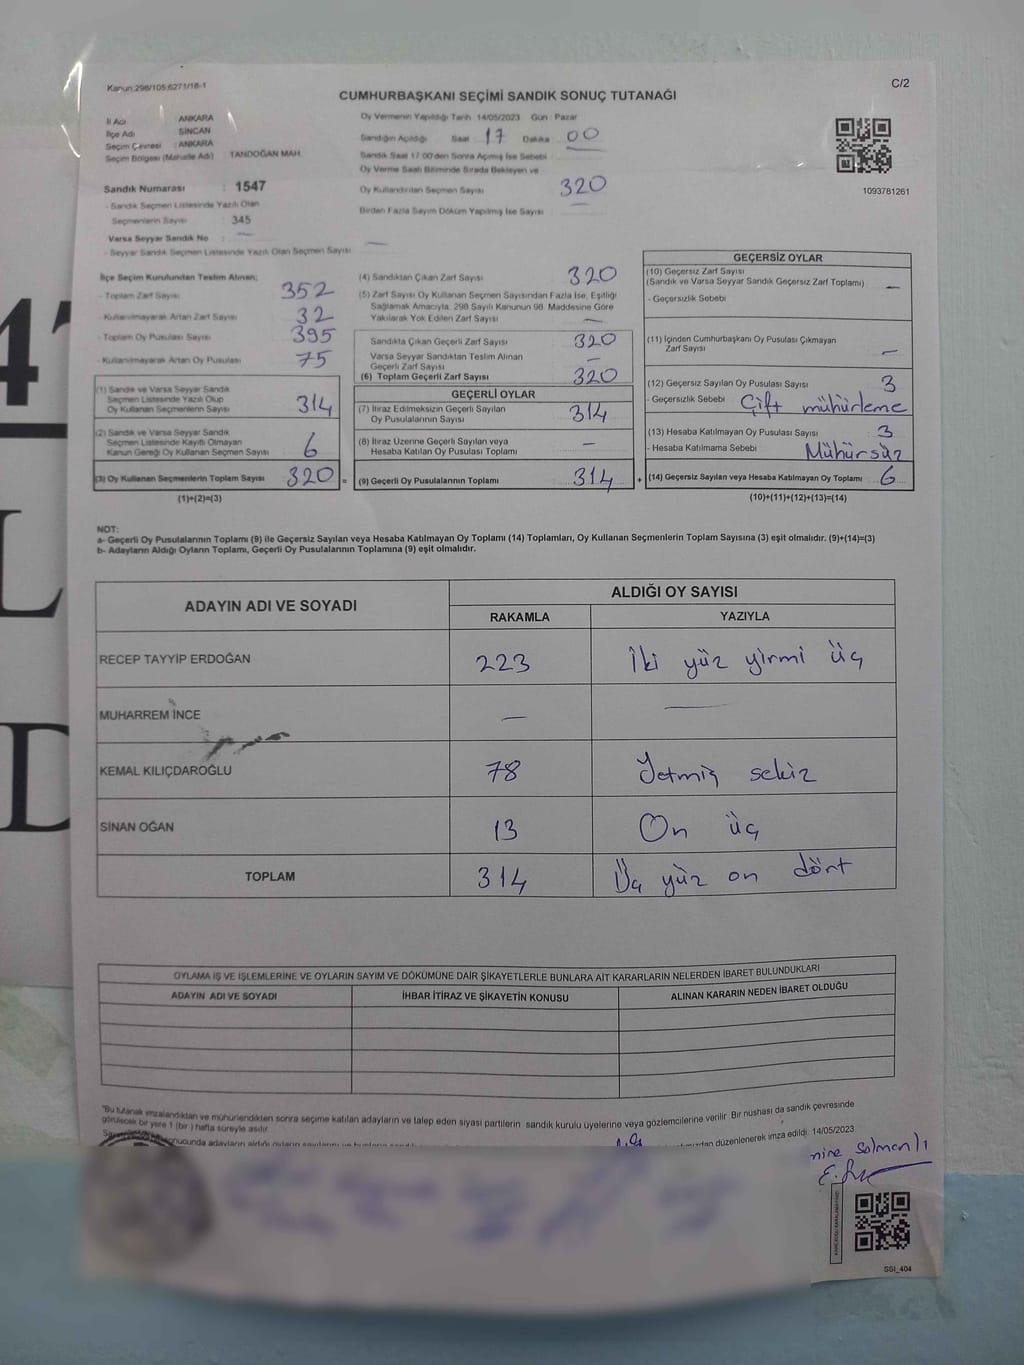 Kanun:298/105;6271/18-1
C/2
CUMHURBAŞKANI SEÇİMİ SANDIK SONUÇ TUTANAĞI
İl Adı : ANKARA
İlçe Adı : SİNCAN
Seçim Çevresi : ANKARA
Seçim Bölgesi (Mahalle Adı) TANDOĞAN MAH.
Sandık Numarası : 1547
- Sandık Seçmen Listesinde Yazılı Olan
Seçmenlerin Sayısı : 345
Varsa Seyyar Sandık No : —
- Seyyar Sandık Seçmen Listesinde Yazılı Olan Seçmen Sayısı —
Oy Vermenin Yapıldığı Tarih 14/05/2023 Gün : Pazar
Sandığın Açıldığı Saat 17 Dakika 00
Sandık Saat 17:00'den Sonra Açılmış İse Sebebi
Oy Verme Saati Bitiminde Sırada Bekleyen ve
Oy Kullandırılan Seçmen Sayısı 320
Birden Fazla Sayım Döküm Yapılmış İse Sayısı —
1093781261
İlçe Seçim Kurulundan Teslim Alınan;
- Toplam Zarf Sayısı 352
- Kullanılmayarak Artan Zarf Sayısı 32
- Toplam Oy Pusulası Sayısı 395
- Kullanılmayarak Artan Oy Pusulası 75
(1) Sandık ve Varsa Seyyar Sandık
Seçmen Listesinde Yazılı Olup
Oy Kullanan Seçmenlerin Sayısı 314
(2) Sandık ve Varsa Seyyar Sandık
Seçmen Listesinde Kayıtlı Olmayan
Kanun Gereği Oy Kullanan Seçmen Sayısı 6
(3) Oy Kullanan Seçmenlerin Toplam Sayısı 320 =
(1)+(2)=(3)
(4) Sandıktan Çıkan Zarf Sayısı 320
(5) Zarf Sayısı Oy Kullanan Seçmen Sayısından Fazla İse, Eşitliği
Sağlamak Amacıyla, 298 Sayılı Kanunun 98. Maddesine Göre
Yakılarak Yok Edilen Zarf Sayısı —
Sandıkta Çıkan Geçerli Zarf Sayısı 320
Varsa Seyyar Sandıktan Teslim Alınan
Geçerli Zarf Sayısı —
(6) Toplam Geçerli Zarf Sayısı 320
GEÇERLİ OYLAR
(7) İtiraz Edilmeksizin Geçerli Sayılan
Oy Pusulalarının Sayısı 314
(8) İtiraz Üzerine Geçerli Sayılan veya
Hesaba Katılan Oy Pusulası Toplamı —
(9) Geçerli Oy Pusulalarının Toplamı 314 +
GEÇERSİZ OYLAR
(10) Geçersiz Zarf Sayısı
(Sandık ve Varsa Seyyar Sandık Geçersiz Zarf Toplamı) —
- Geçersizlik Sebebi
(11) İçinden Cumhurbaşkanı Oy Pusulası Çıkmayan
Zarf Sayısı —
(12) Geçersiz Sayılan Oy Pusulası Sayısı 3
- Geçersizlik Sebebi Çift mühürleme
(13) Hesaba Katılmayan Oy Pusulası Sayısı 3
- Hesaba Katılmama Sebebi Mühürsüz
(14) Geçersiz Sayılan veya Hesaba Katılmayan Oy Toplamı 6
(10)+(11)+(12)+(13)=(14)
NOT:
a- Geçerli Oy Pusulalarının Toplamı (9) ile Geçersiz Sayılan veya Hesaba Katılmayan Oy Toplamı (14) Toplamları, Oy Kullanan Seçmenlerin Toplam Sayısına (3) eşit olmalıdır. (9)+(14)=(3)
b- Adayların Aldığı Oyların Toplamı, Geçerli Oy Pusulalarının Toplamına (9) eşit olmalıdır.
ADAYIN ADI VE SOYADI
ALDIĞI OY SAYISI
RAKAMLA YAZIYLA
RECEP TAYYİP ERDOĞAN 223 İki yüz yirmi üç
MUHARREM İNCE — —
KEMAL KILIÇDAROĞLU 78 Yetmiş sekiz
SİNAN OĞAN 13 On üç
TOPLAM 314 Üç yüz on dört
OYLAMA İŞ VE İŞLEMLERİNE VE OYLARIN SAYIM VE DÖKÜMÜNE DAİR ŞİKAYETLERLE BUNLARA AİT KARARLARIN NELERDEN İBARET BULUNDUKLARI
ADAYIN ADI VE SOYADI İHBAR İTİRAZ VE ŞİKAYETİN KONUSU ALINAN KARARIN NEDEN İBARET OLDUĞU
"Bu tutanak imzalandıktan ve mühürlendikten sonra seçime katılan adayların ve talep eden siyasi partilerin sandık kurulu üyelerine veya gözlemcilerine verilir. Bir nüshası da sandık çevresinde
görülecek bir yere 1 (bir) hafta süreyle asılır.
düzenlenerek imza edildi. 14/05/2023
nine Salmanlı
SSI_404
4
L
D